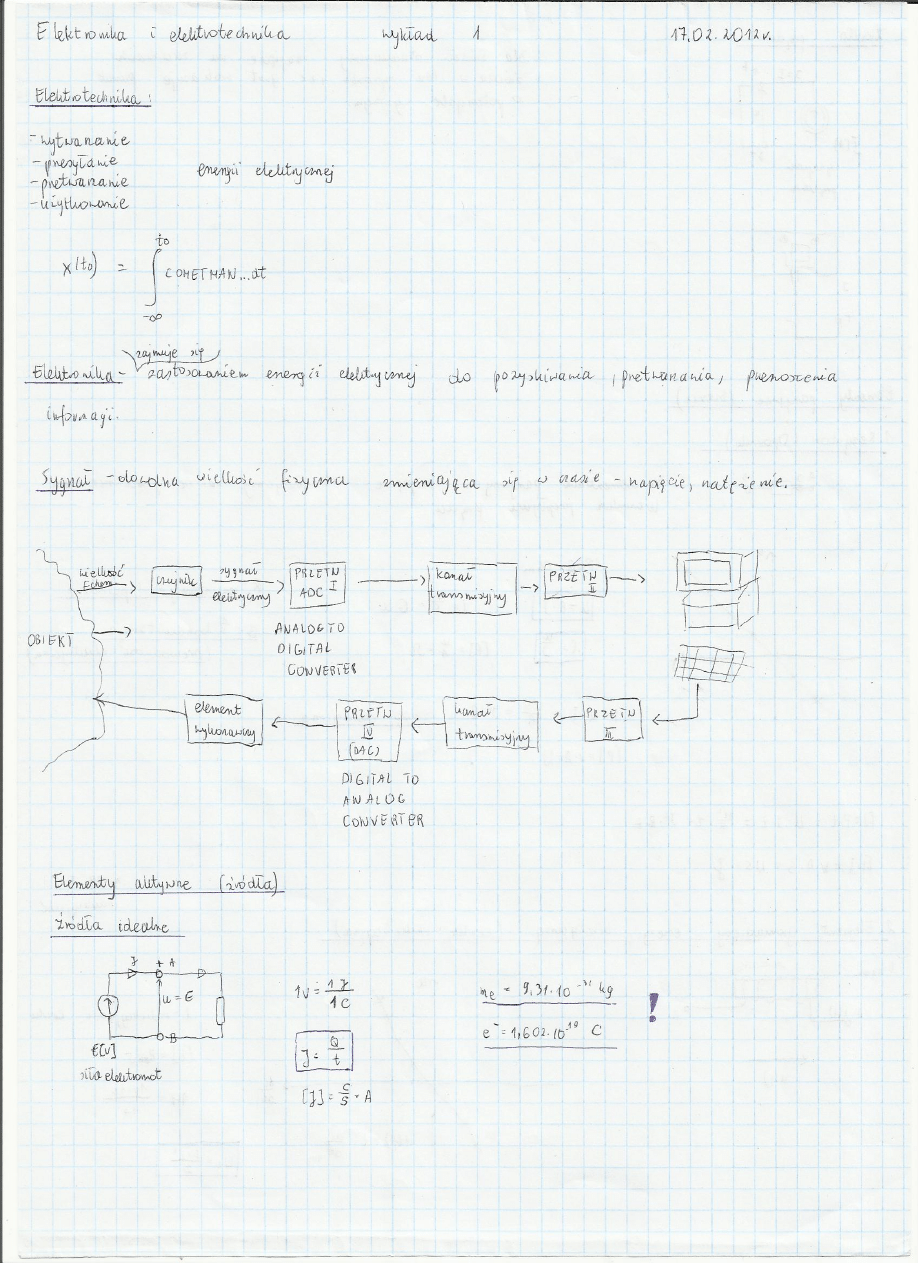 Elektronika i elektrotechnika wykład 1 17.02.2012r.
Elektrotechnika:
- wytwarzanie
- przesyłanie
- przetwarzanie
energii elektrycznej
- użytkowanie
x(t₀) = ∫ COHETMAN...dt
t₀
-∞
zajmuje się
Elektronika - zastosowaniem energii elektrycznej do pozyskiwania, przetwarzania, przenoszenia
informacji.
Sygnał - dowolna wielkość fizyczna zmieniająca się w czasie - napięcie, natężenie.
OBIEKT
wielkość
czujnik
sygnał
elektryczny
PRZETW I
ADC
ANALOG TO
DIGITAL
CONVERTER
kanał
transmisyjny
PRZETW
II
PRZETW
III
kanał
transmisyjny
PRZETW
IV
(DAC)
DIGITAL TO
ANALOG
CONVERTER
element
wykonawczy
Elementy aktywne (źródła)
Źródła idealne
J + A
U = E
B
E[V]
siła elektromot
1V = 1J/1C
J = Q/t
[J] = C/s = A
me = 9,31·10⁻³¹ kg
e⁻ = 1,602·10⁻¹⁹ C
!